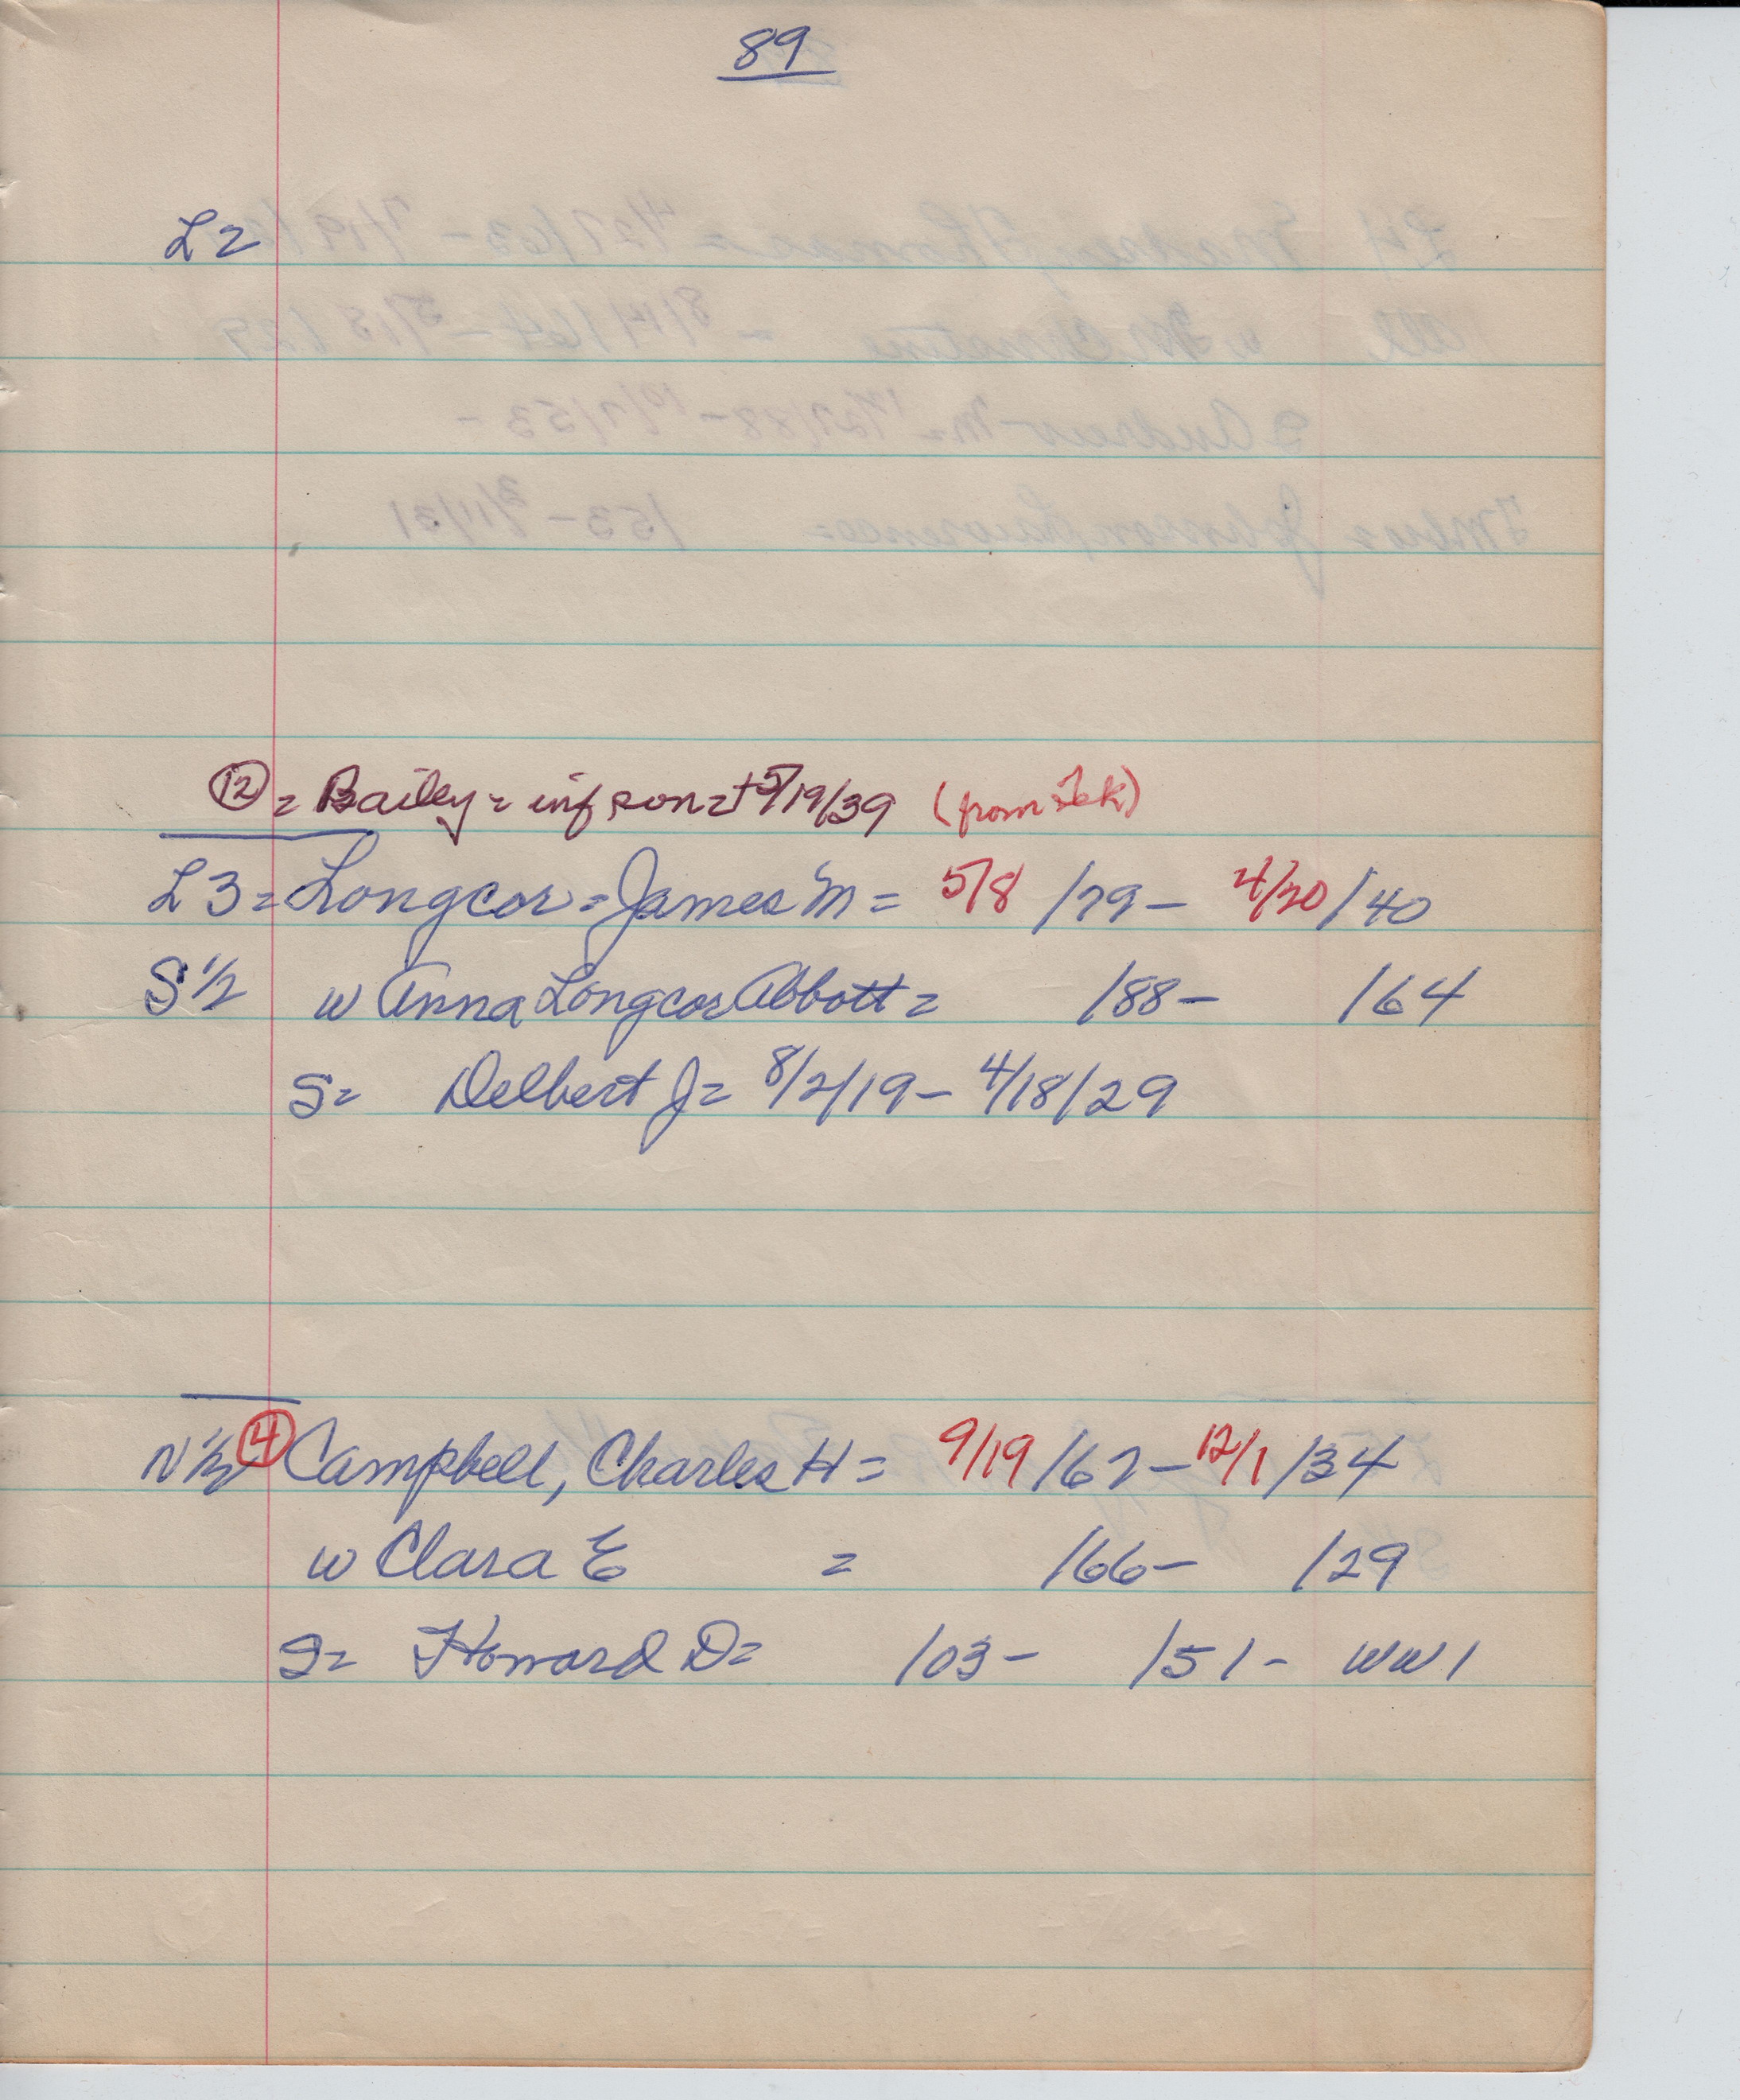 89
L2
12 = Bailey = inf son = + 5/19/39 (from
L3 = Longcor = James M = 5/8 /79 - 4/20/40
S 1/2 w Anna Longcor Abbott = /88 - /64
S = Delbert J = 8/2/19 - 4/18/29
N 1/2 4 Campbell, Charles H = 9/19 /62 - 12/1 /34
w Clara E = /66 - /29
S = Howard D = /03 - /51 - WW1